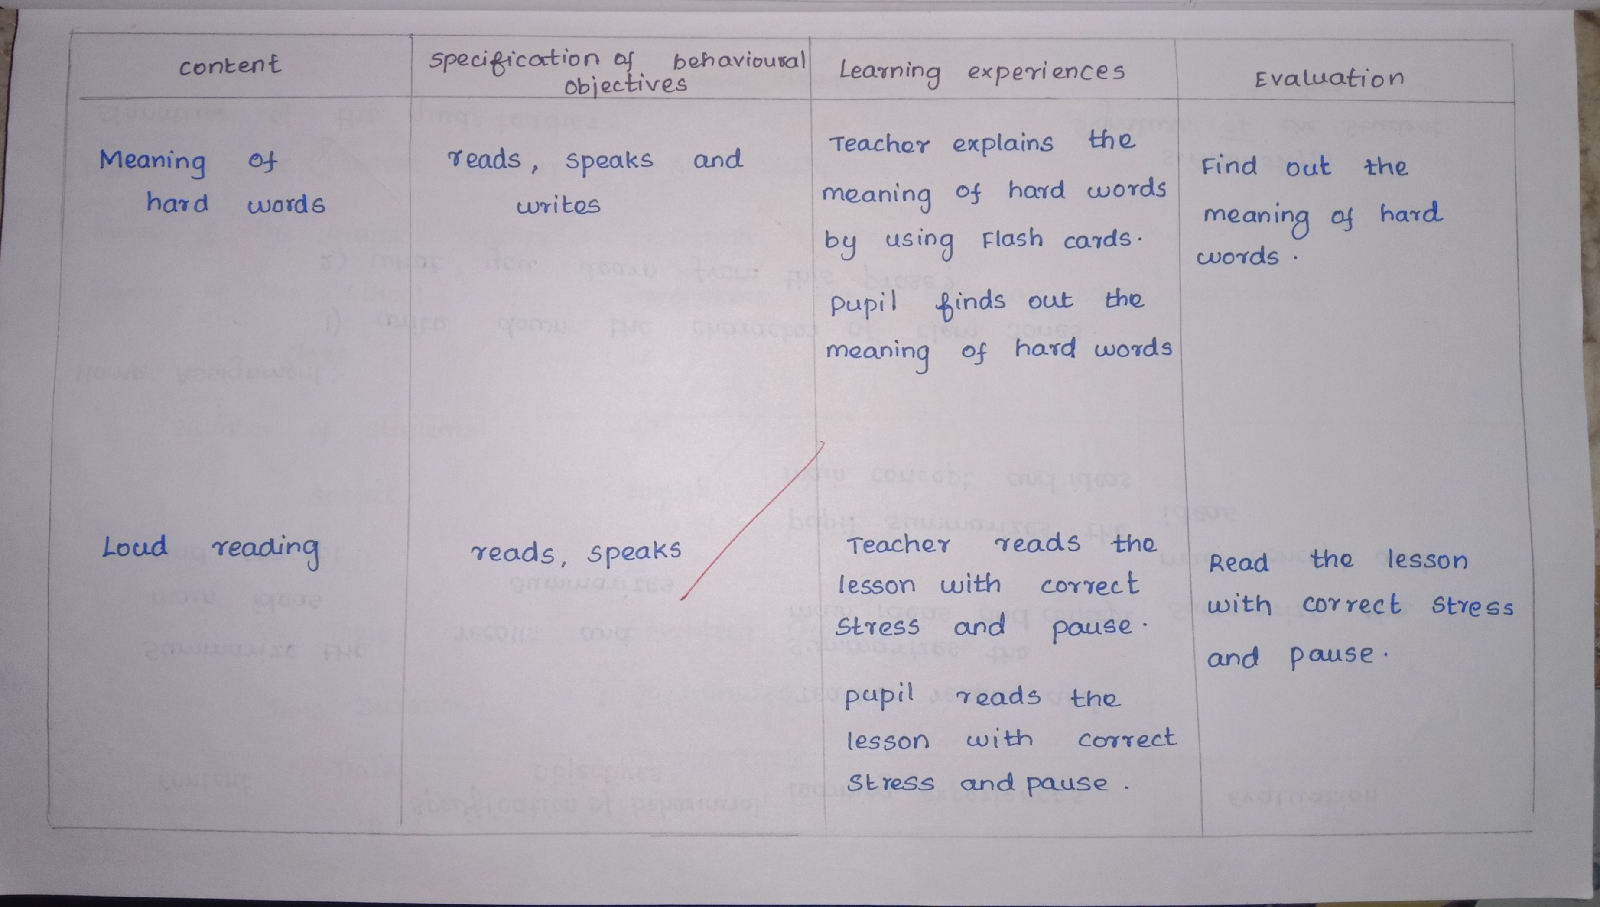 content
specification of behavioural
objectives
Learning experiences
Evaluation
Meaning of
hard words
reads, speaks and
writes
Teacher explains the
meaning of hard words
by using Flash cards.
pupil finds out the
meaning of hard words
Find out the
meaning of hard
words.
Loud reading
reads, speaks
Teacher reads the
lesson with correct
stress and pause.
pupil reads the
lesson with correct
stress and pause.
Read the lesson
with correct stress
and pause.